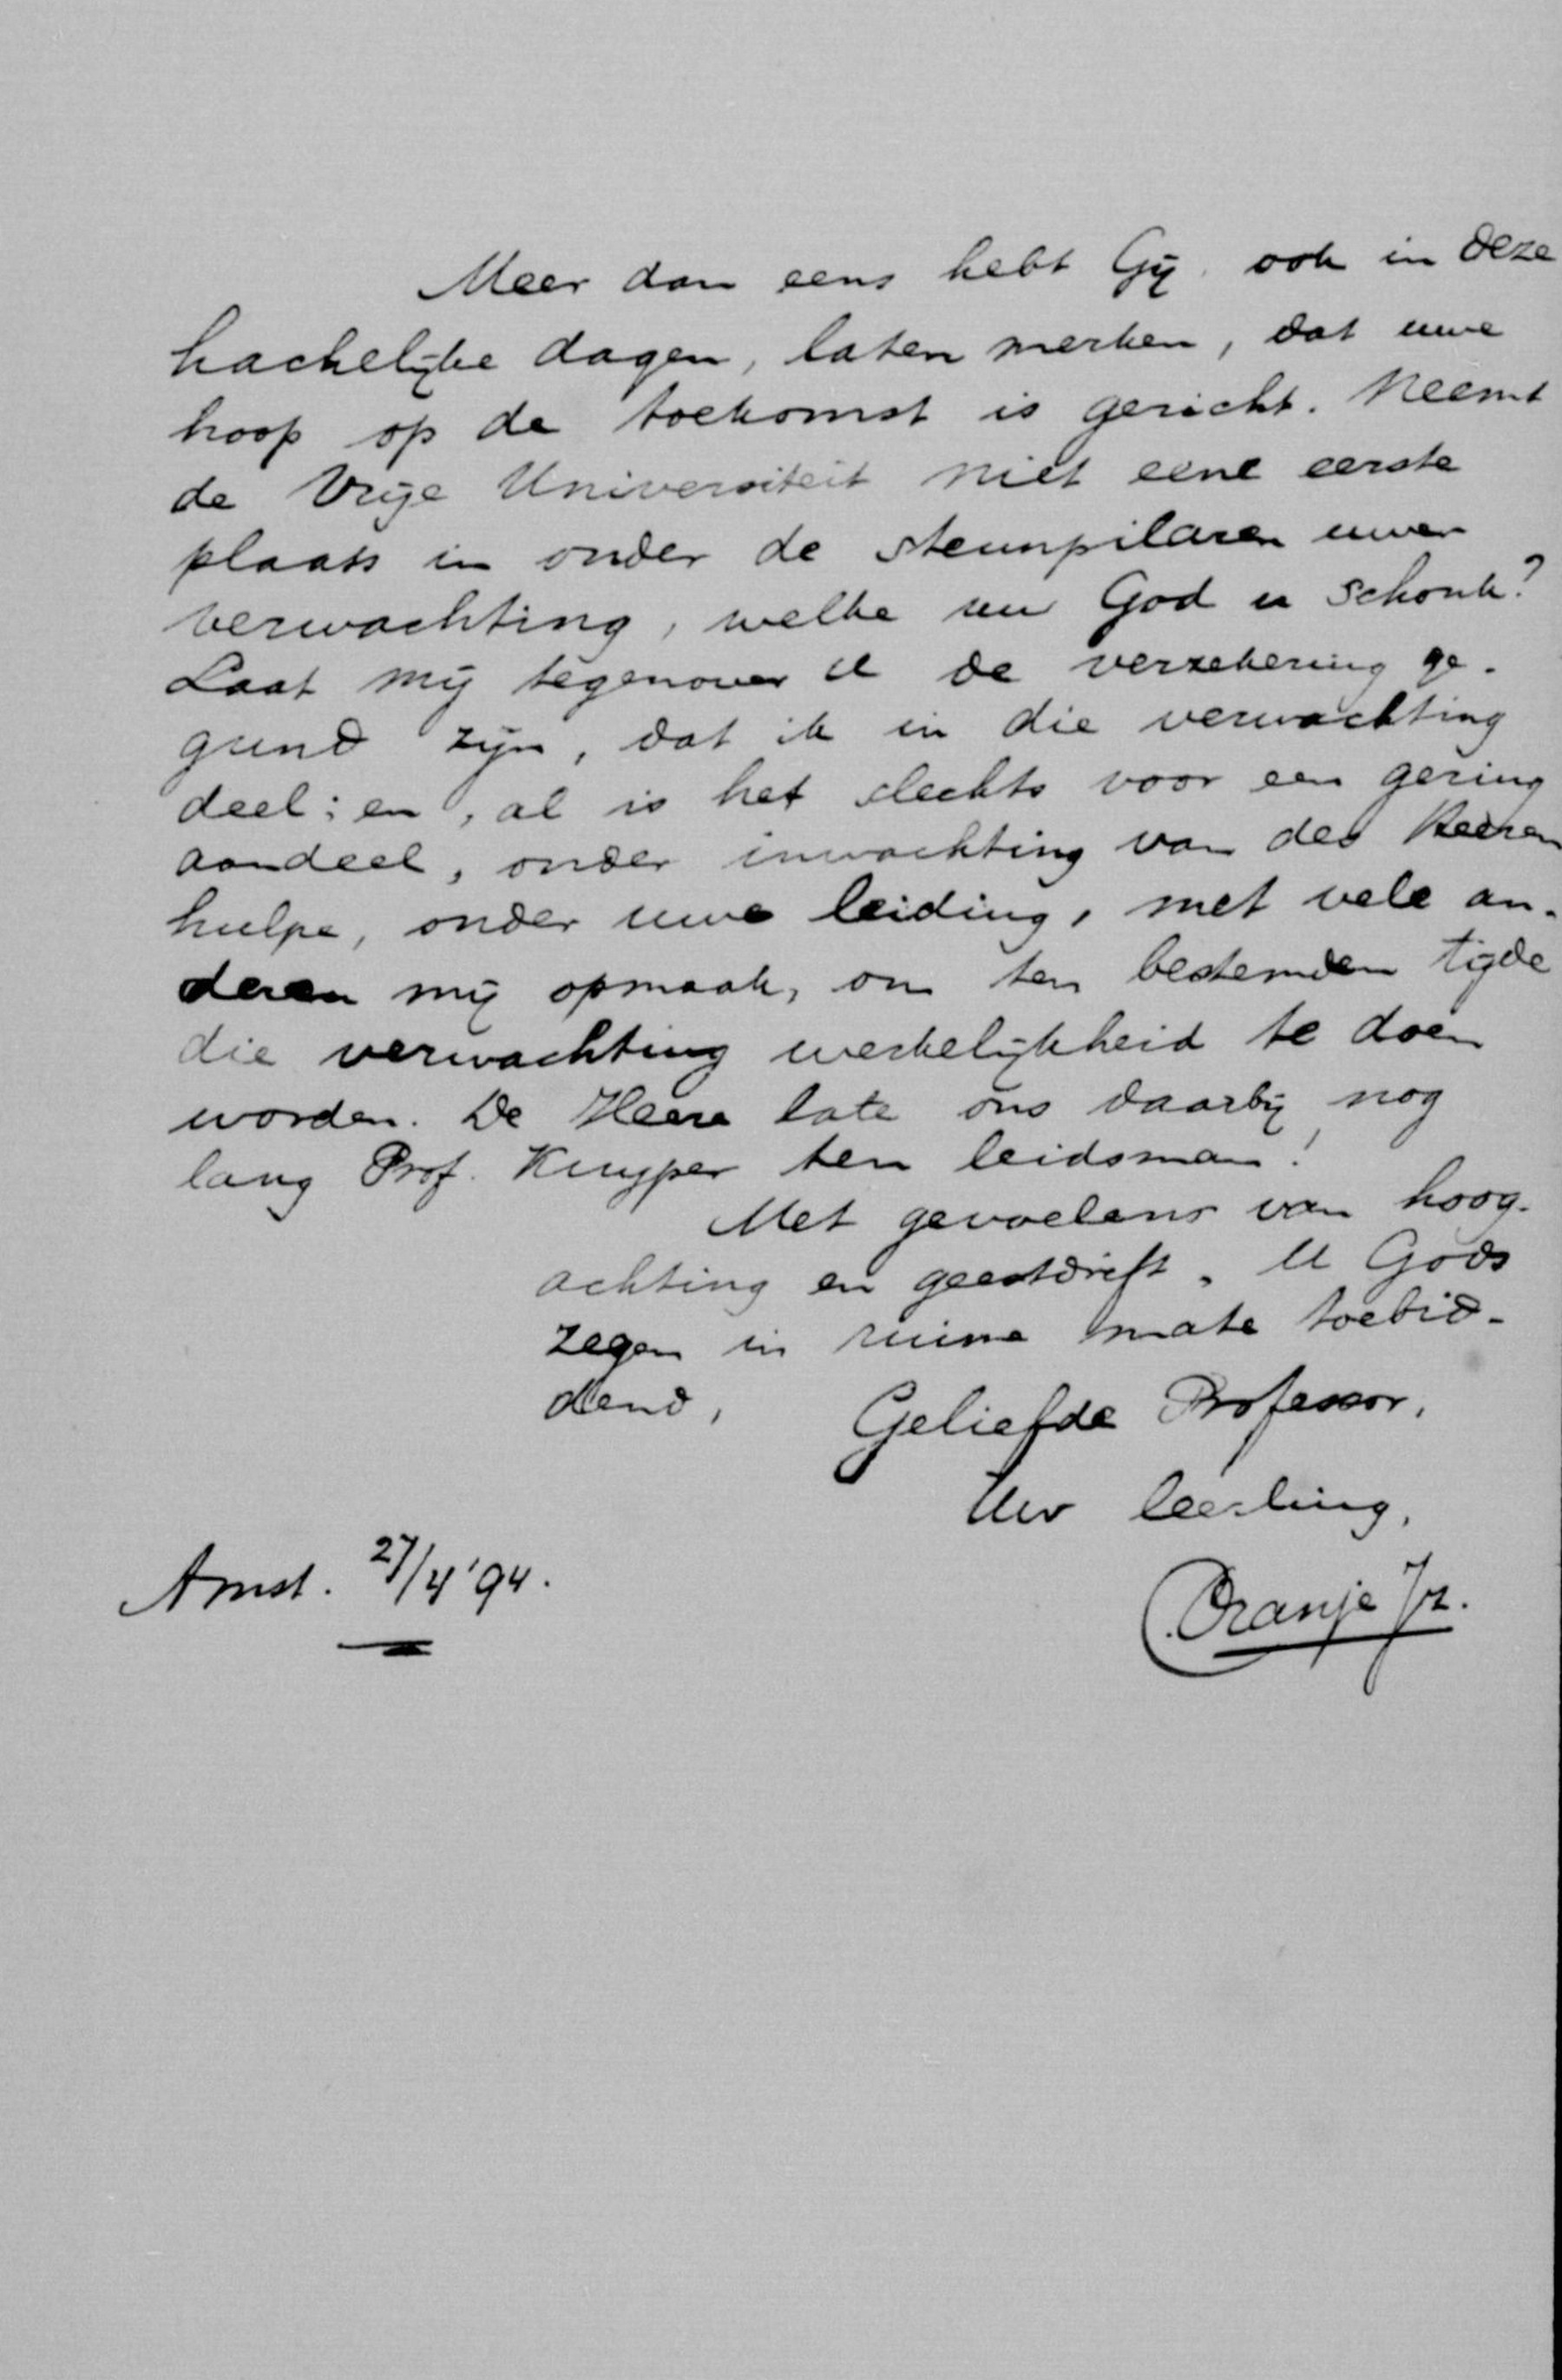 Meer dan eens hebt Gij, ook in deze
hachelijke dagen, laten merken, dat uwe
hoop op de toekomst is gericht. Neemt
de Vrije Universiteit niet eene eerste
plaats in onder de steunpilaren uwer
verwachting, welke uw God u schonk?
Laat mij tegenover U de verzekering ge-
gund zijn, dat ik in die verwachting
deel; en, al is het slechts voor een gering
aandeel, onder inwachting van des Heeren
hulpe, onder uwe leiding, met vele an-
deren mij opmaak, om ten bestemden tijde
die verwachting werkelijkheid te doen
worden. De Heere late ons daarbij nog
lang Prof. Kuyper ten leidsman!
Met gevoelens van hoog-
achting en geestdrift, U Gods
zegen in ruime mate toebid-
dend,
Geliefde Professor,
Uw leerling,
Oranje Jz.
Amst. 27/4 '94.